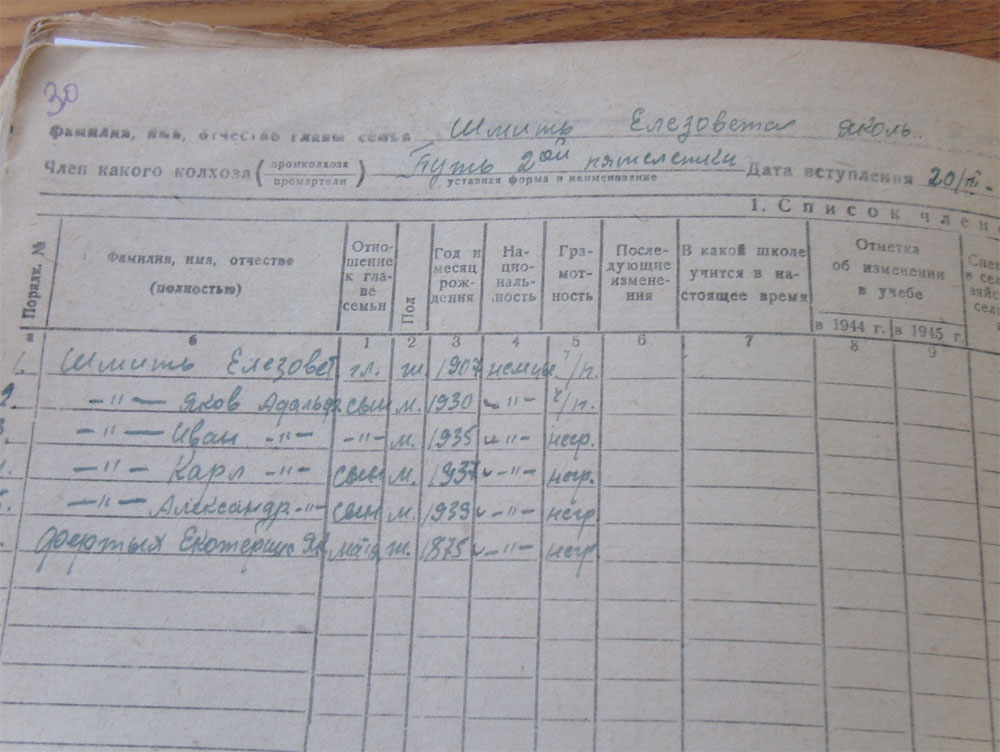 30
Фамилия, имя, отчество главы семьи Шмить Елезовета яколь.
Член какого колхоза (промколхоза промартели) Путь 2ой пятелетки Дата вступления 20/III-
уставная форма и наименование
1. Список член
Порядк. № Фамилия, имя, отчество (полностью) Отношение к главе семьи Пол Год и месяц рождения Национальность Грамотность Последующие изменения В какой школе учится в настоящее время Отметка об изменении в учебе
в 1944 г. в 1945 г.
б 1 2 3 4 5 6 7 8 9
1. Шмить Елезовет гл. ж. 1907 немцы ч/н.
2. —"— Яков Адальф. сын м. 1930 —"— ч/н.
3. —"— Иван —"— —"— м. 1935 —"— негр.
—"— Карл —"— сын м. 1937 —"— негр.
—"— Александр —"— сын м. 1939 —"— негр
Екатерина ж. 1875 —"— негр